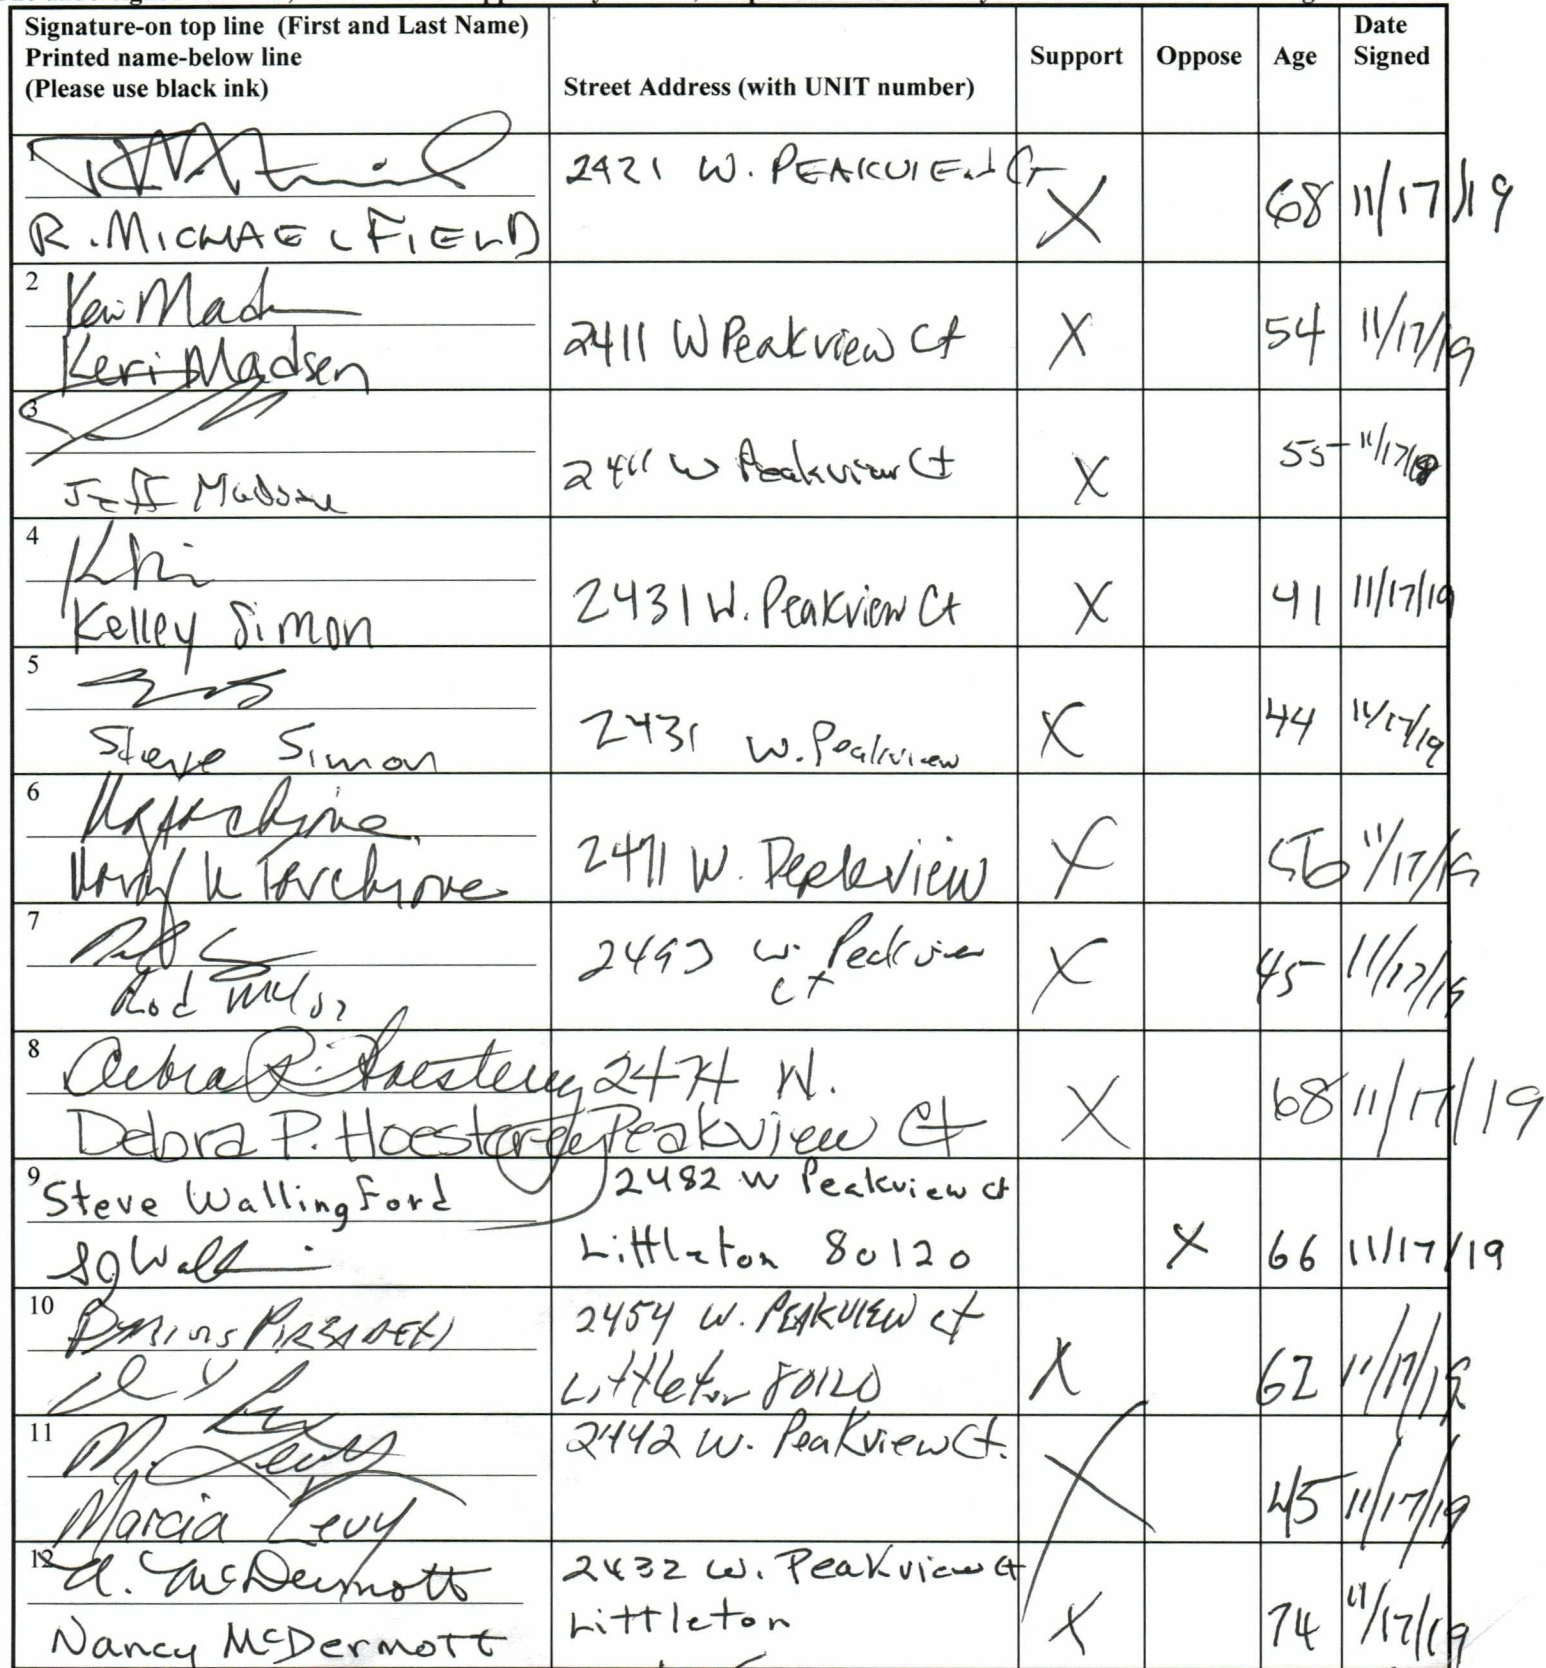 Signature-on top line (First and Last Name)
Printed name-below line
(Please use black ink)
Street Address (with UNIT number)
Support
Oppose
Age
Date
Signed
1
R. MICHAEL FIELD
2421 W. PEAKVIEW CT
X
68
11/17/19
2
Keri Madsen
2411 W Peakview Ct
X
54
11/17/19
3
Jeff Madsen
2411 W Peakview Ct
X
55
4
Kelley Simon
2431 W. Peakview Ct
X
41
11/17/19
5
Steve Simon
2431 W. Peakview
X
44
11/17/19
6
2471 W. Peakview
X
56
11/17/19
7
Rod
2493 W. Peakview
Ct
X
45
11/17/19
8
Debra P. Hoesterey
Debra P. Hoesterey
2474 W.
Peakview Ct
X
68
11/17/19
9
Steve Wallingford
2482 W Peakview ct
Littleton 80120
X
66
11/17/19
10
2454 W. PEAKVIEW ct
Littleton 80120
X
62
11/17/19
11
M. Levy
Marcia Levy
2442 W. Peakview Ct.
X
45
11/17/19
12
McDermott
Nancy McDermott
2432 W. Peakview Ct
Littleton
X
74
11/17/19